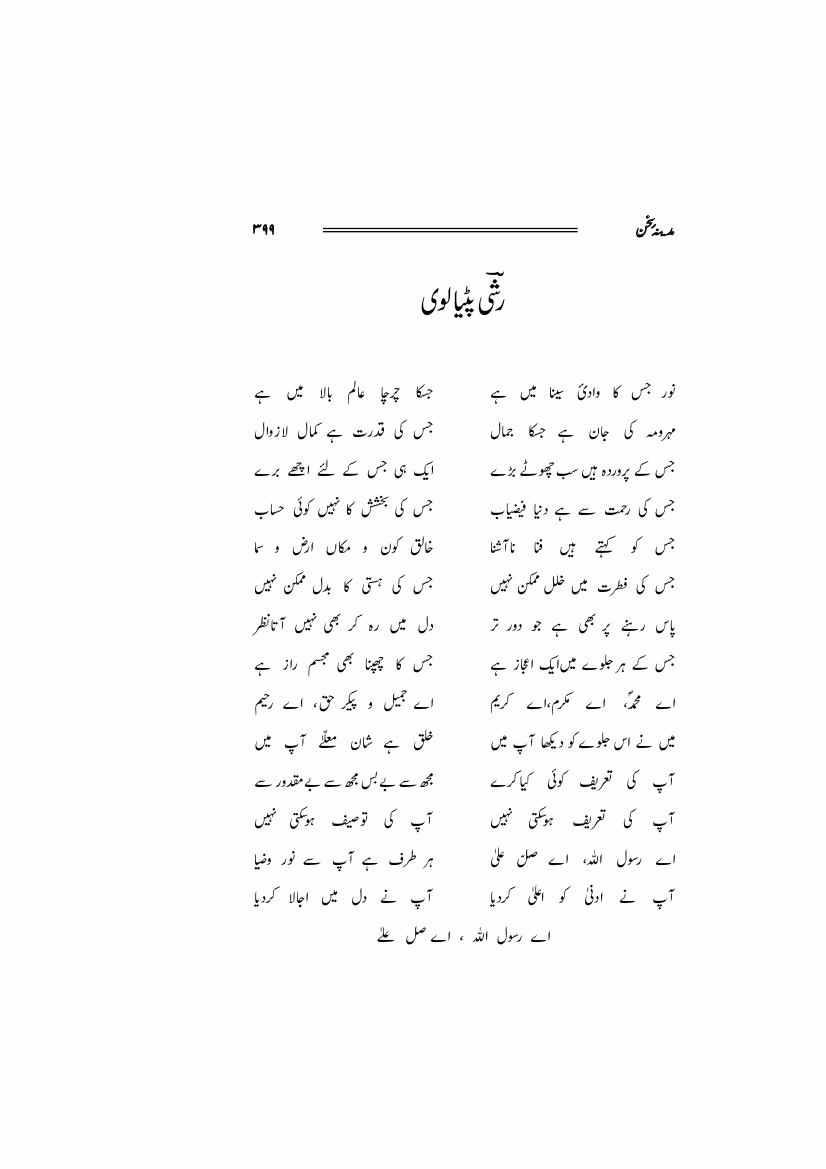 مدینۂ سخن ۳۹۹
رشیؔ پٹیالوی
نور جس کا وادیٔ سینا میں ہے جسکا چرچا عالم بالا میں ہے
مہرومہ کی جان ہے جسکا جمال جس کی قدرت ہے کمال لازوال
جس کے پروردہ ہیں سب چھوٹے بڑے ایک ہی جس کے لئے اچھے برے
جس کی رحمت سے ہے دنیا فیضیاب جس کی بخشش کا نہیں کوئی حساب
جس کو کہتے ہیں فنا ناآشنا خالق کون و مکاں ارض و سما
جس کی فطرت میں خلل ممکن نہیں جس کی ہستی کا بدل ممکن نہیں
پاس رہنے پر بھی ہے جو دور تر دل میں رہ کر بھی نہیں آتا نظر
جس کے ہر جلوے میں ایک اعجاز ہے جس کا چھپنا بھی مجسم راز ہے
اے محمدؐ، اے مکرم،اے کریم اے جمیل و پیکر حق، اے رحیم
میں نے اس جلوے کو دیکھا آپ میں خلق ہے شان معلّےٰ آپ میں
آپ کی تعریف کوئی کیا کرے مجھ سے بے بس مجھ سے بے مقدور سے
آپ کی تعریف ہوسکتی نہیں آپ کی توصیف ہوسکتی نہیں
اے رسول اللہ، اے صل علیٰ ہر طرف ہے آپ سے نور وضیا
آپ نے ادنیٰ کو اعلیٰ کردیا آپ نے دل میں اجالا کردیا
اے رسول اللہ ، اے صل علےٰ